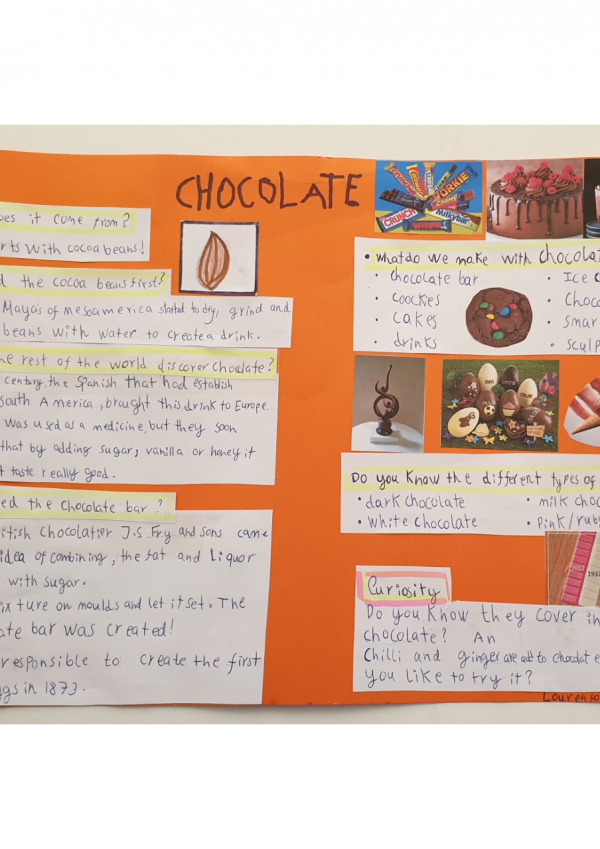 CHOCOLATE
oes it come from?
rts with cocoa beans!
d the cocoa beans first?
Maya's of mesoamerica started to dry, grind and
beans with water to create a drink.
he rest of the world discover chocolate?
century, the Spanish that had establish
south America, brought this drink to Europe.
was used as a medicine, but they soon
that by adding sugar, vanilla or honey it
t taste really good.
ed the chocolate bar?
itish chocolatier J.S. Fry and sons came
idea of combining, the fat and Liquor
with sugar.
ix ture on moulds and let it set. The
ate bar was created!
responsible to create the first
ggs in 1873.
CRUNCH
YORKIE
Milkybar
• what do we make with chocolat
chocolate bar
• coockies
• cakes
• drinks
• Ice c
• Choco
• smar
• sculp
Do you know the different types of
• dark chocolate
• white chocolate
• milk choc
• Pink/ruby
Curiosity
Do you know they cover in
chocolate? An
Chilli and ginger are add to chocolate
you like to try it?
Lourenço